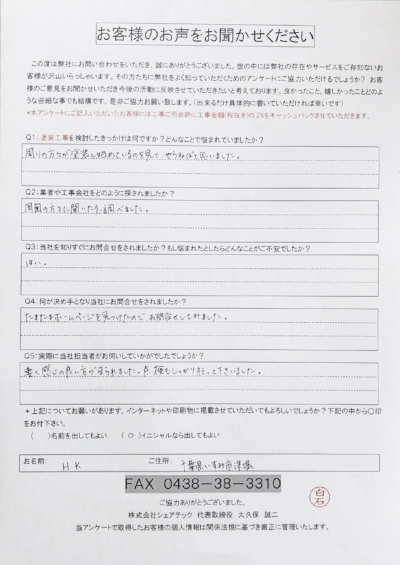 お客様のお声をお聞かせください
この度は弊社にお問い合わせをいただき、誠にありがとうございました。世の中には弊社の存在やサービスをご存知ないお
客様が沢山いらっしゃいます。その方たちに弊社をよく知っていただくためのアンケートにご協力いただけるでしょうか？ お客
様のご意見をお聞かせいただき今後の活動に反映させていただきたいと考えております。良かったこと、嬉しかったことどのよ
うな些細な事でも結構です。是非ご協力お願い致します。（出来るだけ具体的に書いていただければ幸いです）
*本アンケートにご記入いただいたお客様には工事ご用命時に工事金額(税抜き)の2%をキャッシュバックさせていただきます。
Q1：塗装工事を検討したきっかけは何ですか？どんなことで悩まれていましたか？
周りの方々が塗装し始めているのを見て、やらねばと思いました。
Q2：業者や工事会社をどのように探されましたか？
周囲の方々に聞いたり、調べました。
Q3：当社を知りすぐにお問合せをされましたか？もし悩まれたとしたらどんなことがご不安でしたか？
はい。
Q4：何が決め手となり当社にお問合せをされましたか？
たまたまホームページを見つけたので、お問合せしてみました。
Q5：実際に当社担当者がお伺いしていかがでしたでしょうか？
感じの良い方が来られました。点検もしっかり行って下さいました。
*上記についてお願いがあります。インターネットや印刷物に掲載させていただいてもよろしいでしょうか？下記の中から〇印
をお付下さい。
（　）名前を出してもよい　（〇）イニシャルなら出してもよい
お名前： H K　ご住所： 千葉県いすみ市深堀
FAX 0438-38-3310
ご協力ありがとうございました。
株式会社シェアテック　代表取締役　大久保 誠二
白石
当アンケートで取得したお客様の個人情報は関係法規に基づき厳正に管理いたします。